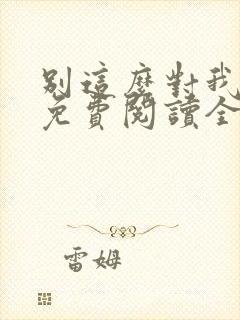 別這麼對我
免費閱讀全
雷姆